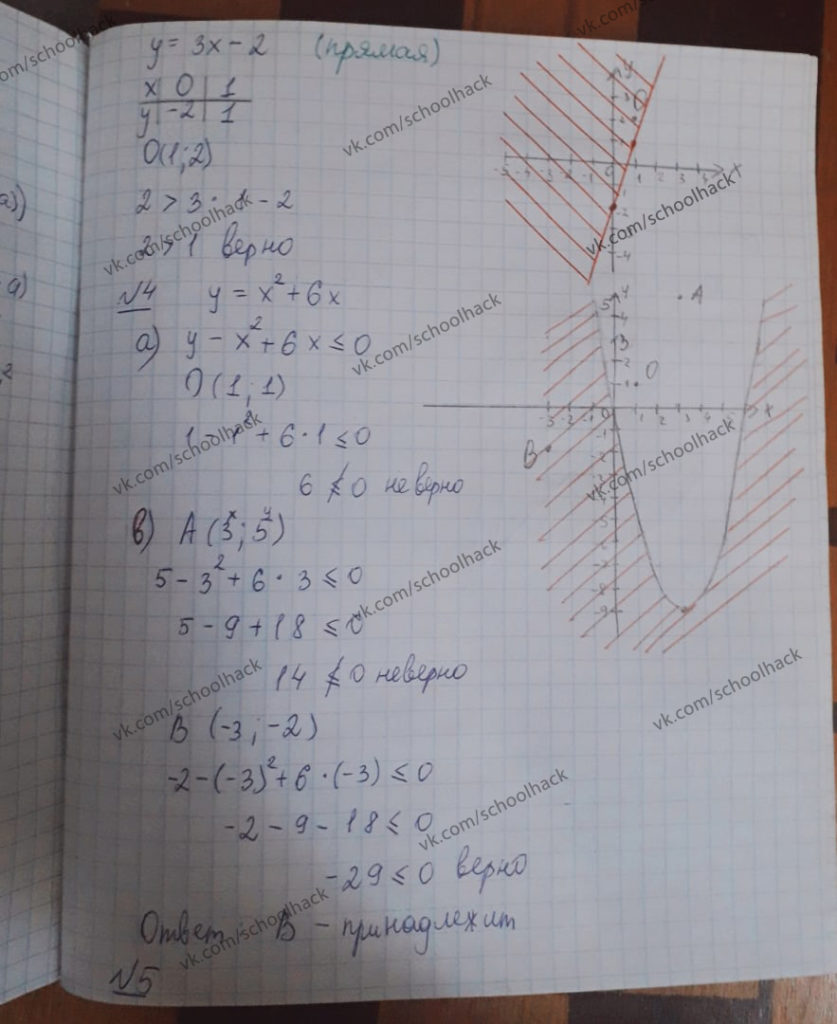 y = 3x - 2 (прямая)
x | 0 | 1
y | -2 | 1
O(1;2)
2 > 3 · 1 - 2
2 > 1 верно
№4 y = x² + 6x
а) y - x² + 6x ≤ 0
O(1;1)
1 - 1² + 6·1 ≤ 0
6 ≰ 0 неверно
в) A(3;5)
x y
5 - 3² + 6 · 3 ≤ 0
5 - 9 + 18 ≤ 0
14 ≰ 0 неверно
B (-3; -2)
-2 - (-3)² + 6 · (-3) ≤ 0
-2 - 9 - 18 ≤ 0
-29 ≤ 0 верно
Ответ: B - принадлежит
№5
y
O
-5 -4 -3 -2 -1 0 1 2 3 4 x
-2
-4
y
A
5
4
3
2
1
O
-3 0 1 2 3 4 x
-1
-2
B
-8
-9
vk.com/schoolhack
vk.com/schoolhack
vk.com/schoolhack
vk.com/schoolhack
vk.com/schoolhack
vk.com/schoolhack
vk.com/schoolhack
vk.com/schoolhack
vk.com/schoolhack
vk.com/schoolhack
vk.com/schoolhack
vk.com/schoolhack
vk.com/schoolhack